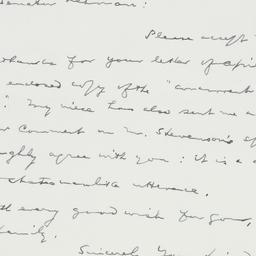 Senator Lehman:
Please accept
thanks for your letter of April
enclosed copy of the "concurrent
." My niece has also sent me a
comment on Mr. Stevenson's
agree with you: it is a
statesmanlike utterance.
every good wish for you,
family.
Sincerely